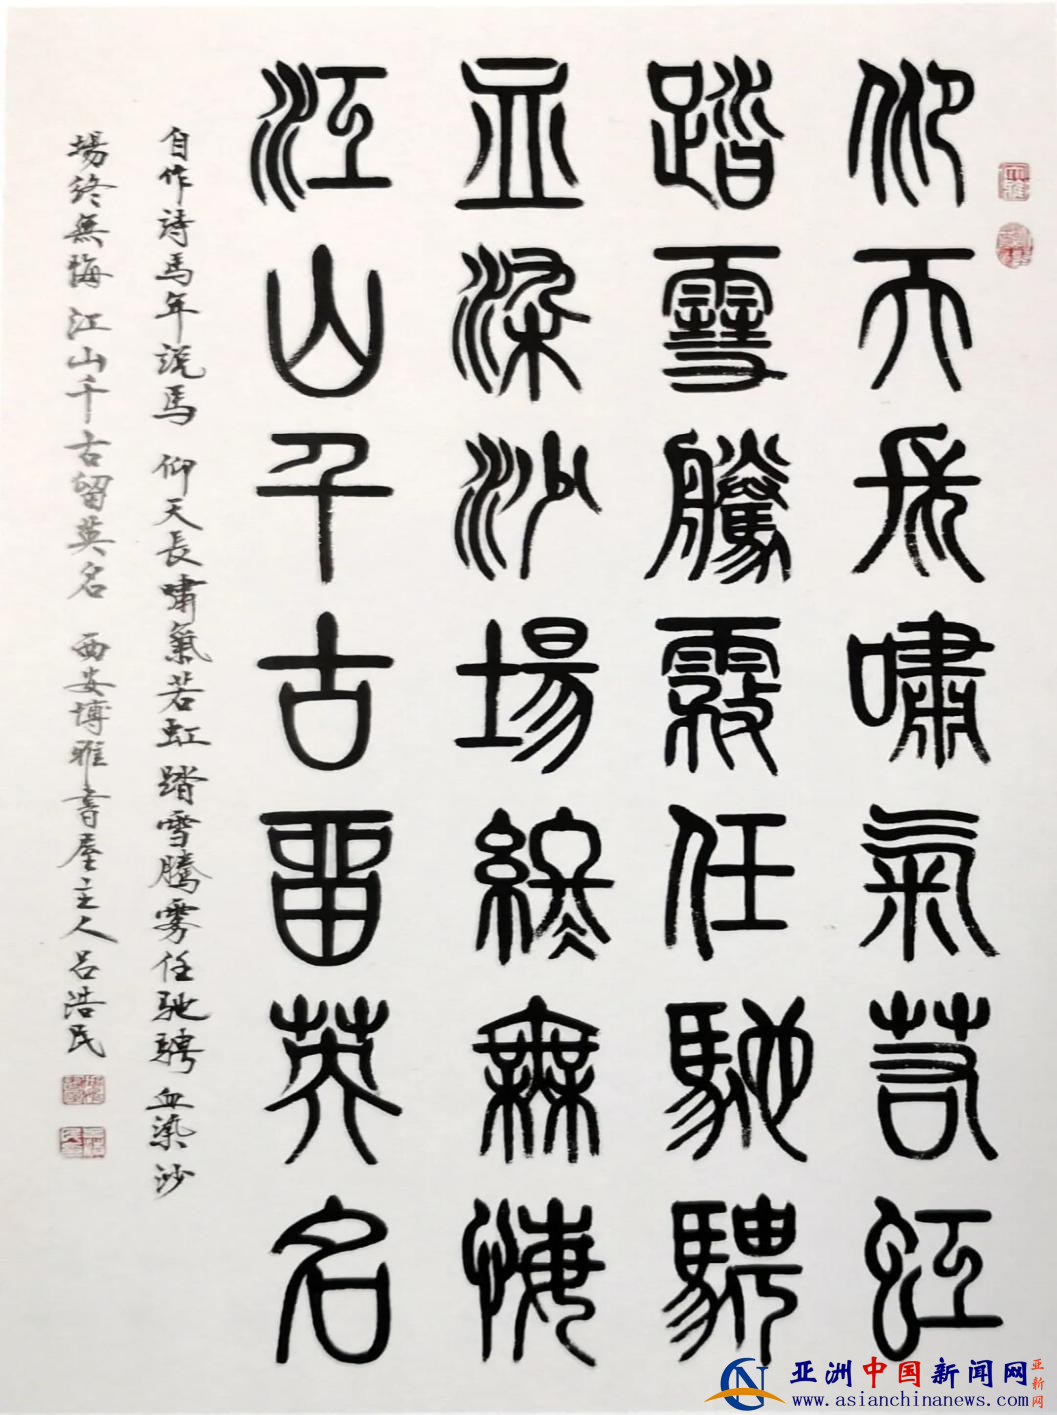 仰天長嘯氣若虹
踏雪騰霧任馳騁
血染沙場終無悔
江山千古留英名
自作詩馬年說馬 仰天長嘯氣若虹踏雪騰霧任馳騁血染沙
場終無悔江山千古留英名 西安博雅書屋主人呂浩民
亚洲中国新闻网
亚新网
www.asianchinanews.com